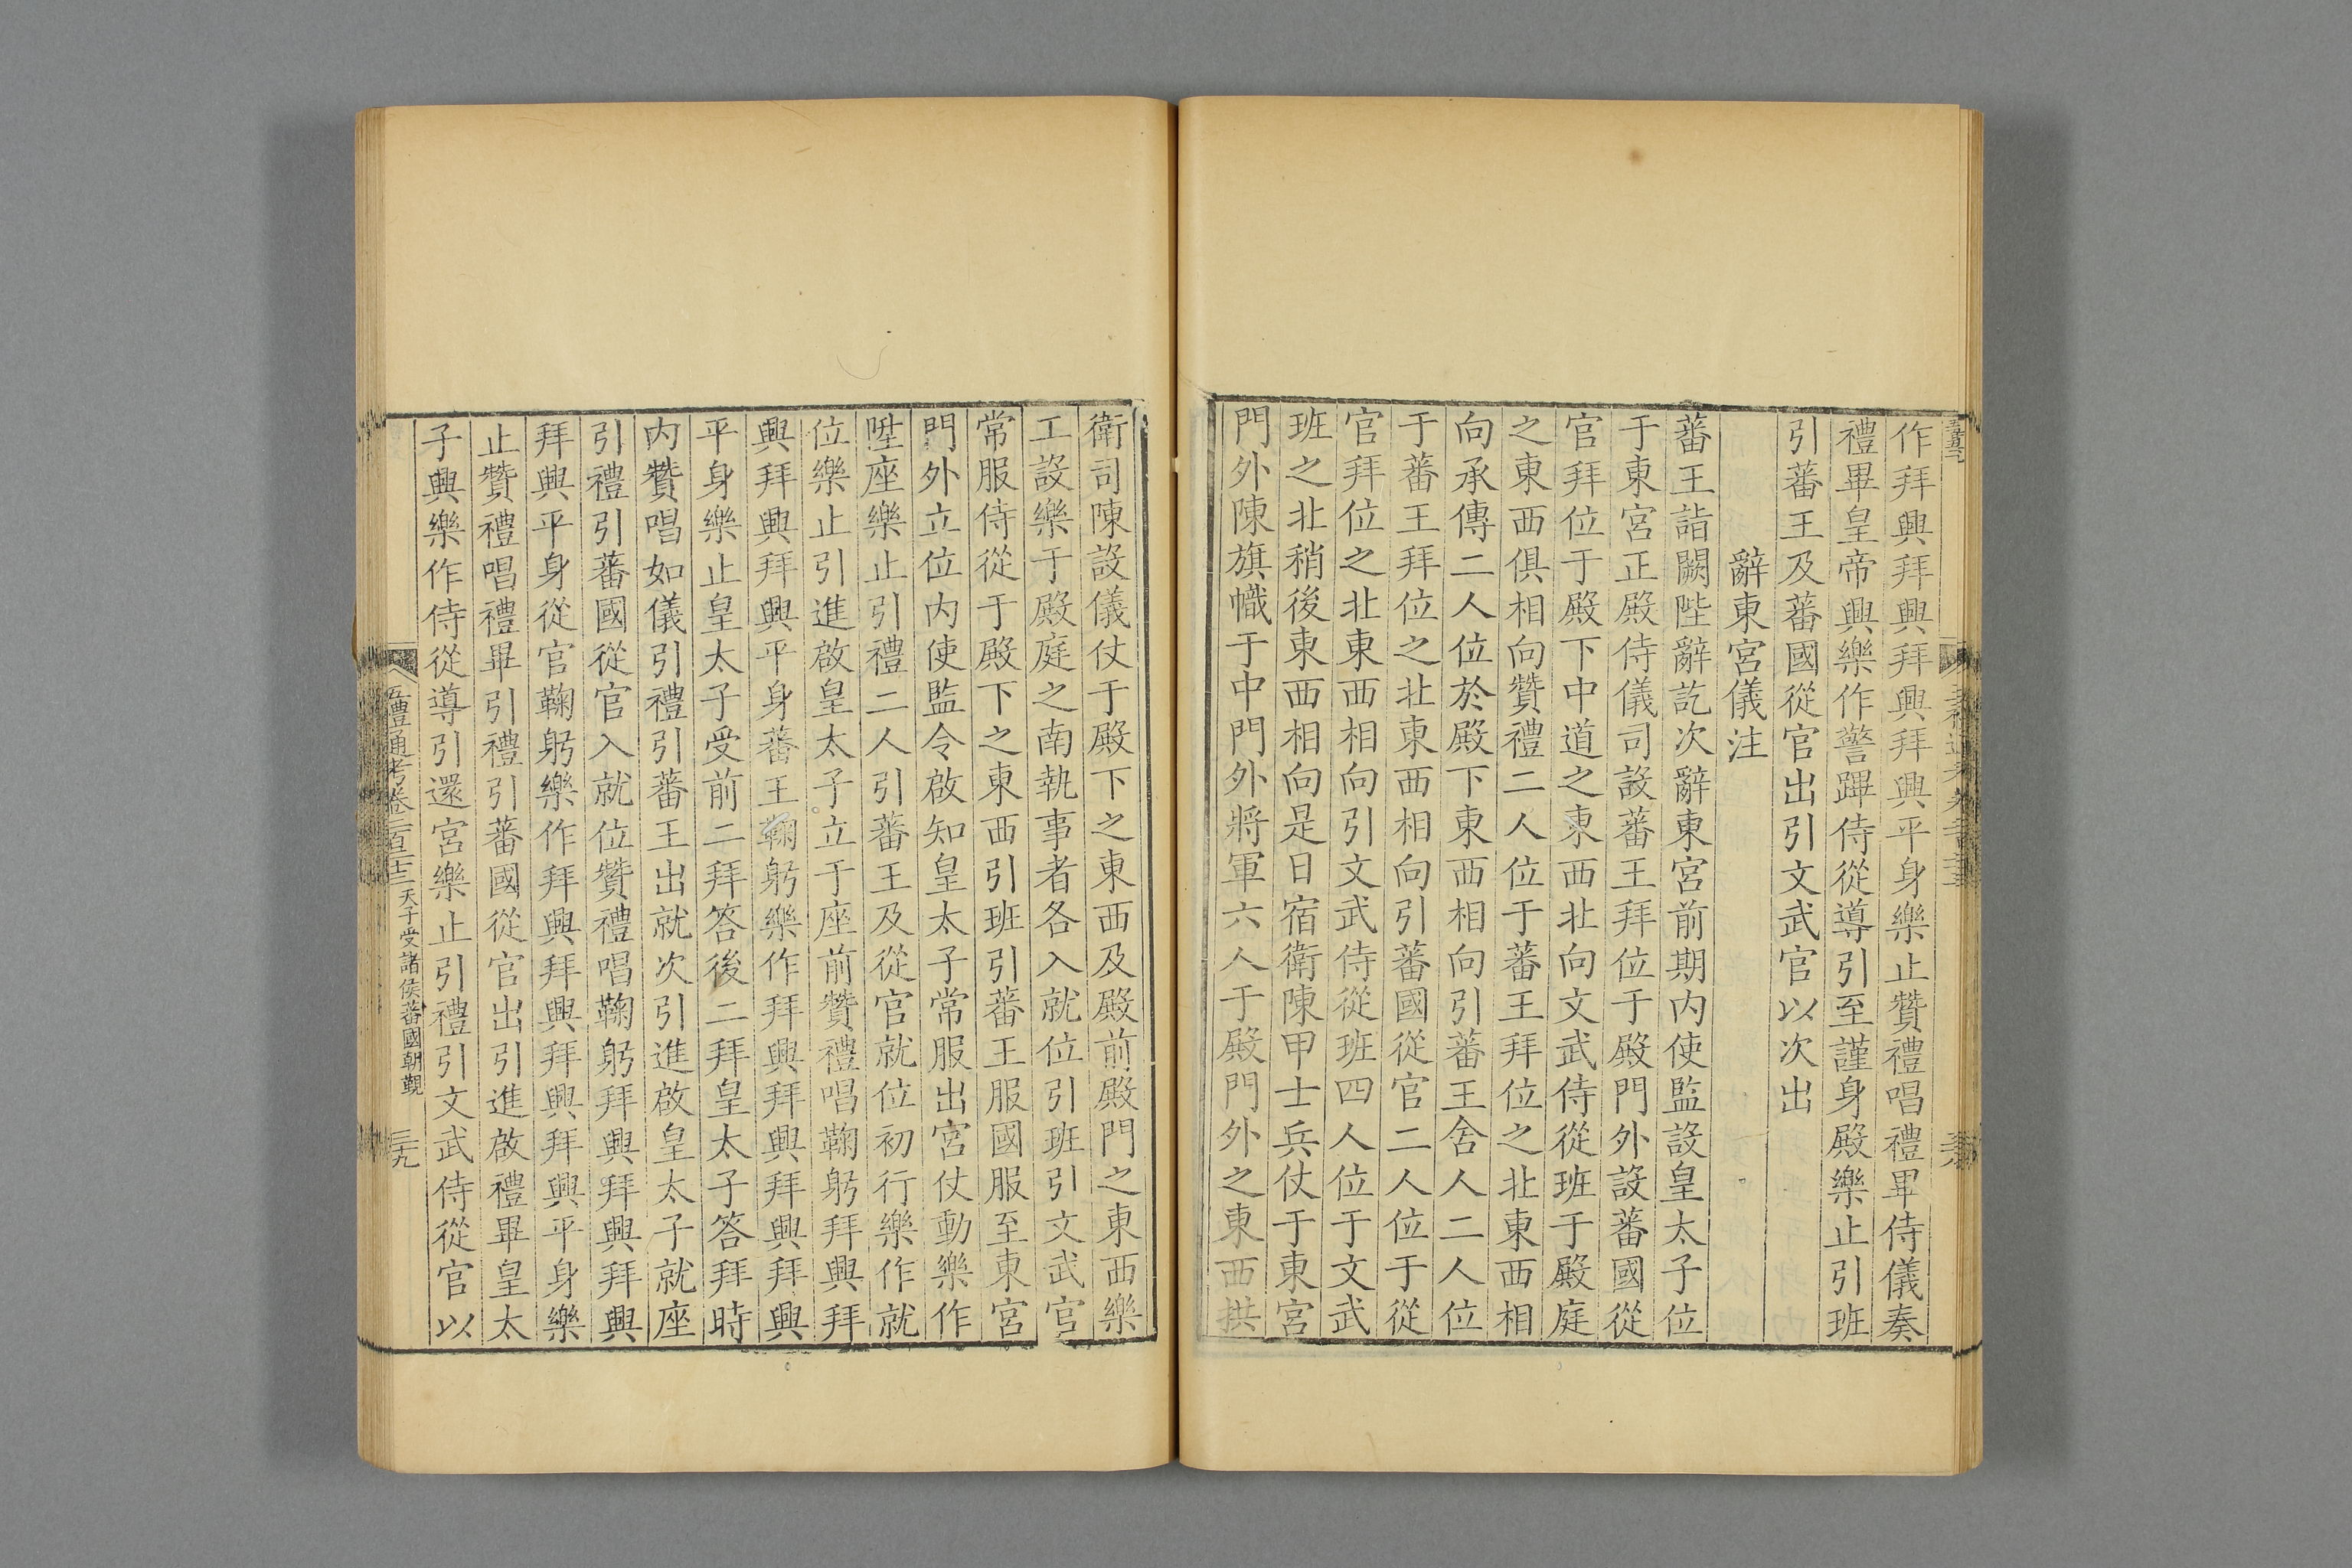 作拜興拜興拜興拜興平身樂止贊禮唱禮畢侍儀奏
禮畢皇帝興樂作警蹕侍從導引至謹身殿樂止引班
引蕃王及蕃國從官出引文武官以次出
辭東宮儀注
蕃王詣闕陛辭訖次辭東宮前期內使監設皇太子位
于東宮正殿侍儀司設蕃王拜位于殿門外設蕃國從
官拜位于殿下中道之東西北向文武侍從班于殿庭
之東西俱相向贊禮二人位于蕃王拜位之北東西相
向承傳二人位於殿下東西相向引蕃王舍人二人位
于蕃王拜位之北東西相向引蕃國從官二人位于從
官拜位之北東西相向引文武侍從班四人位于文武
班之北稍後東西相向是日宿衛陳甲士兵仗于東宮
門外陳旗幟于中門外將軍六人于殿門外之東西拱
衛司陳設儀仗于殿下之東西及殿前殿門之東西樂
工設樂于殿庭之南執事者各入就位引班引文武官
常服侍從于殿下之東西引班引蕃王服國服至東宮
門外立位內使監令啟知皇太子常服出宮仗動樂作
陞座樂止引禮二人引蕃王及從官就位初行樂作就
位樂止引進啟皇太子立于座前贊禮唱鞠躬拜興拜
興拜興拜興平身蕃王鞠躬樂作拜興拜興拜興拜興
平身樂止皇太子受前二拜答後二拜皇太子答拜時
內贊唱如儀引禮引蕃王出就次引進啟皇太子就座
引禮引蕃國從官入就位贊禮唱鞠躬拜興拜興拜興
拜興平身從官鞠躬樂作拜興拜興拜興拜興平身樂
止贊禮唱禮畢引禮引蕃國從官出引進啟禮畢皇太
子興樂作侍從導引還宮樂止引禮引文武侍從官以
五禮通考卷二百二十二 天子受諸侯蕃國朝覲 三十九